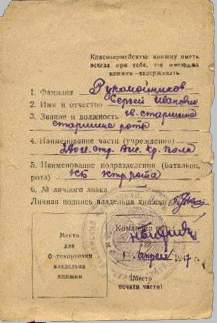 Красноармейскую книжку иметь
всегда при себе. Не имеющих
книжки — задерживать.
1. Фамилия Рукомойников
2. Имя и отчество Сергей Иванович
3. Звание и должность гв. старшина
старшина роты
4. Наименование части (учреждения)
5. Наименование подразделения (батальон,
рота) рота
6. № личного знака
Личная подпись владельца книжки
Место
для
фотокарточки
владельца
книжки
Командир
апрель 1947 г.
(Место
печати части)